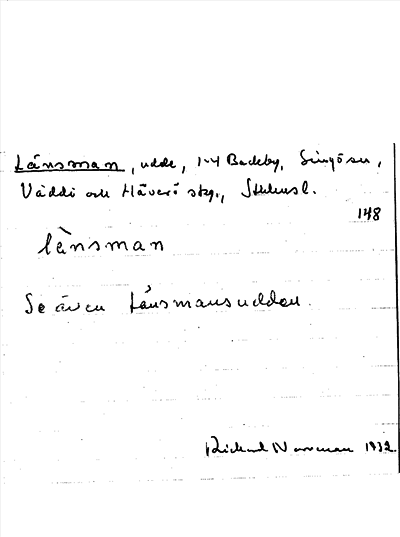 Länsman, udde, 1-4 Backby, Singö sn,
Väddö och Häverö skg., Sthlmsl.
148
lànsman
Se även Länsmansudden.
Richard Norrman 1932.